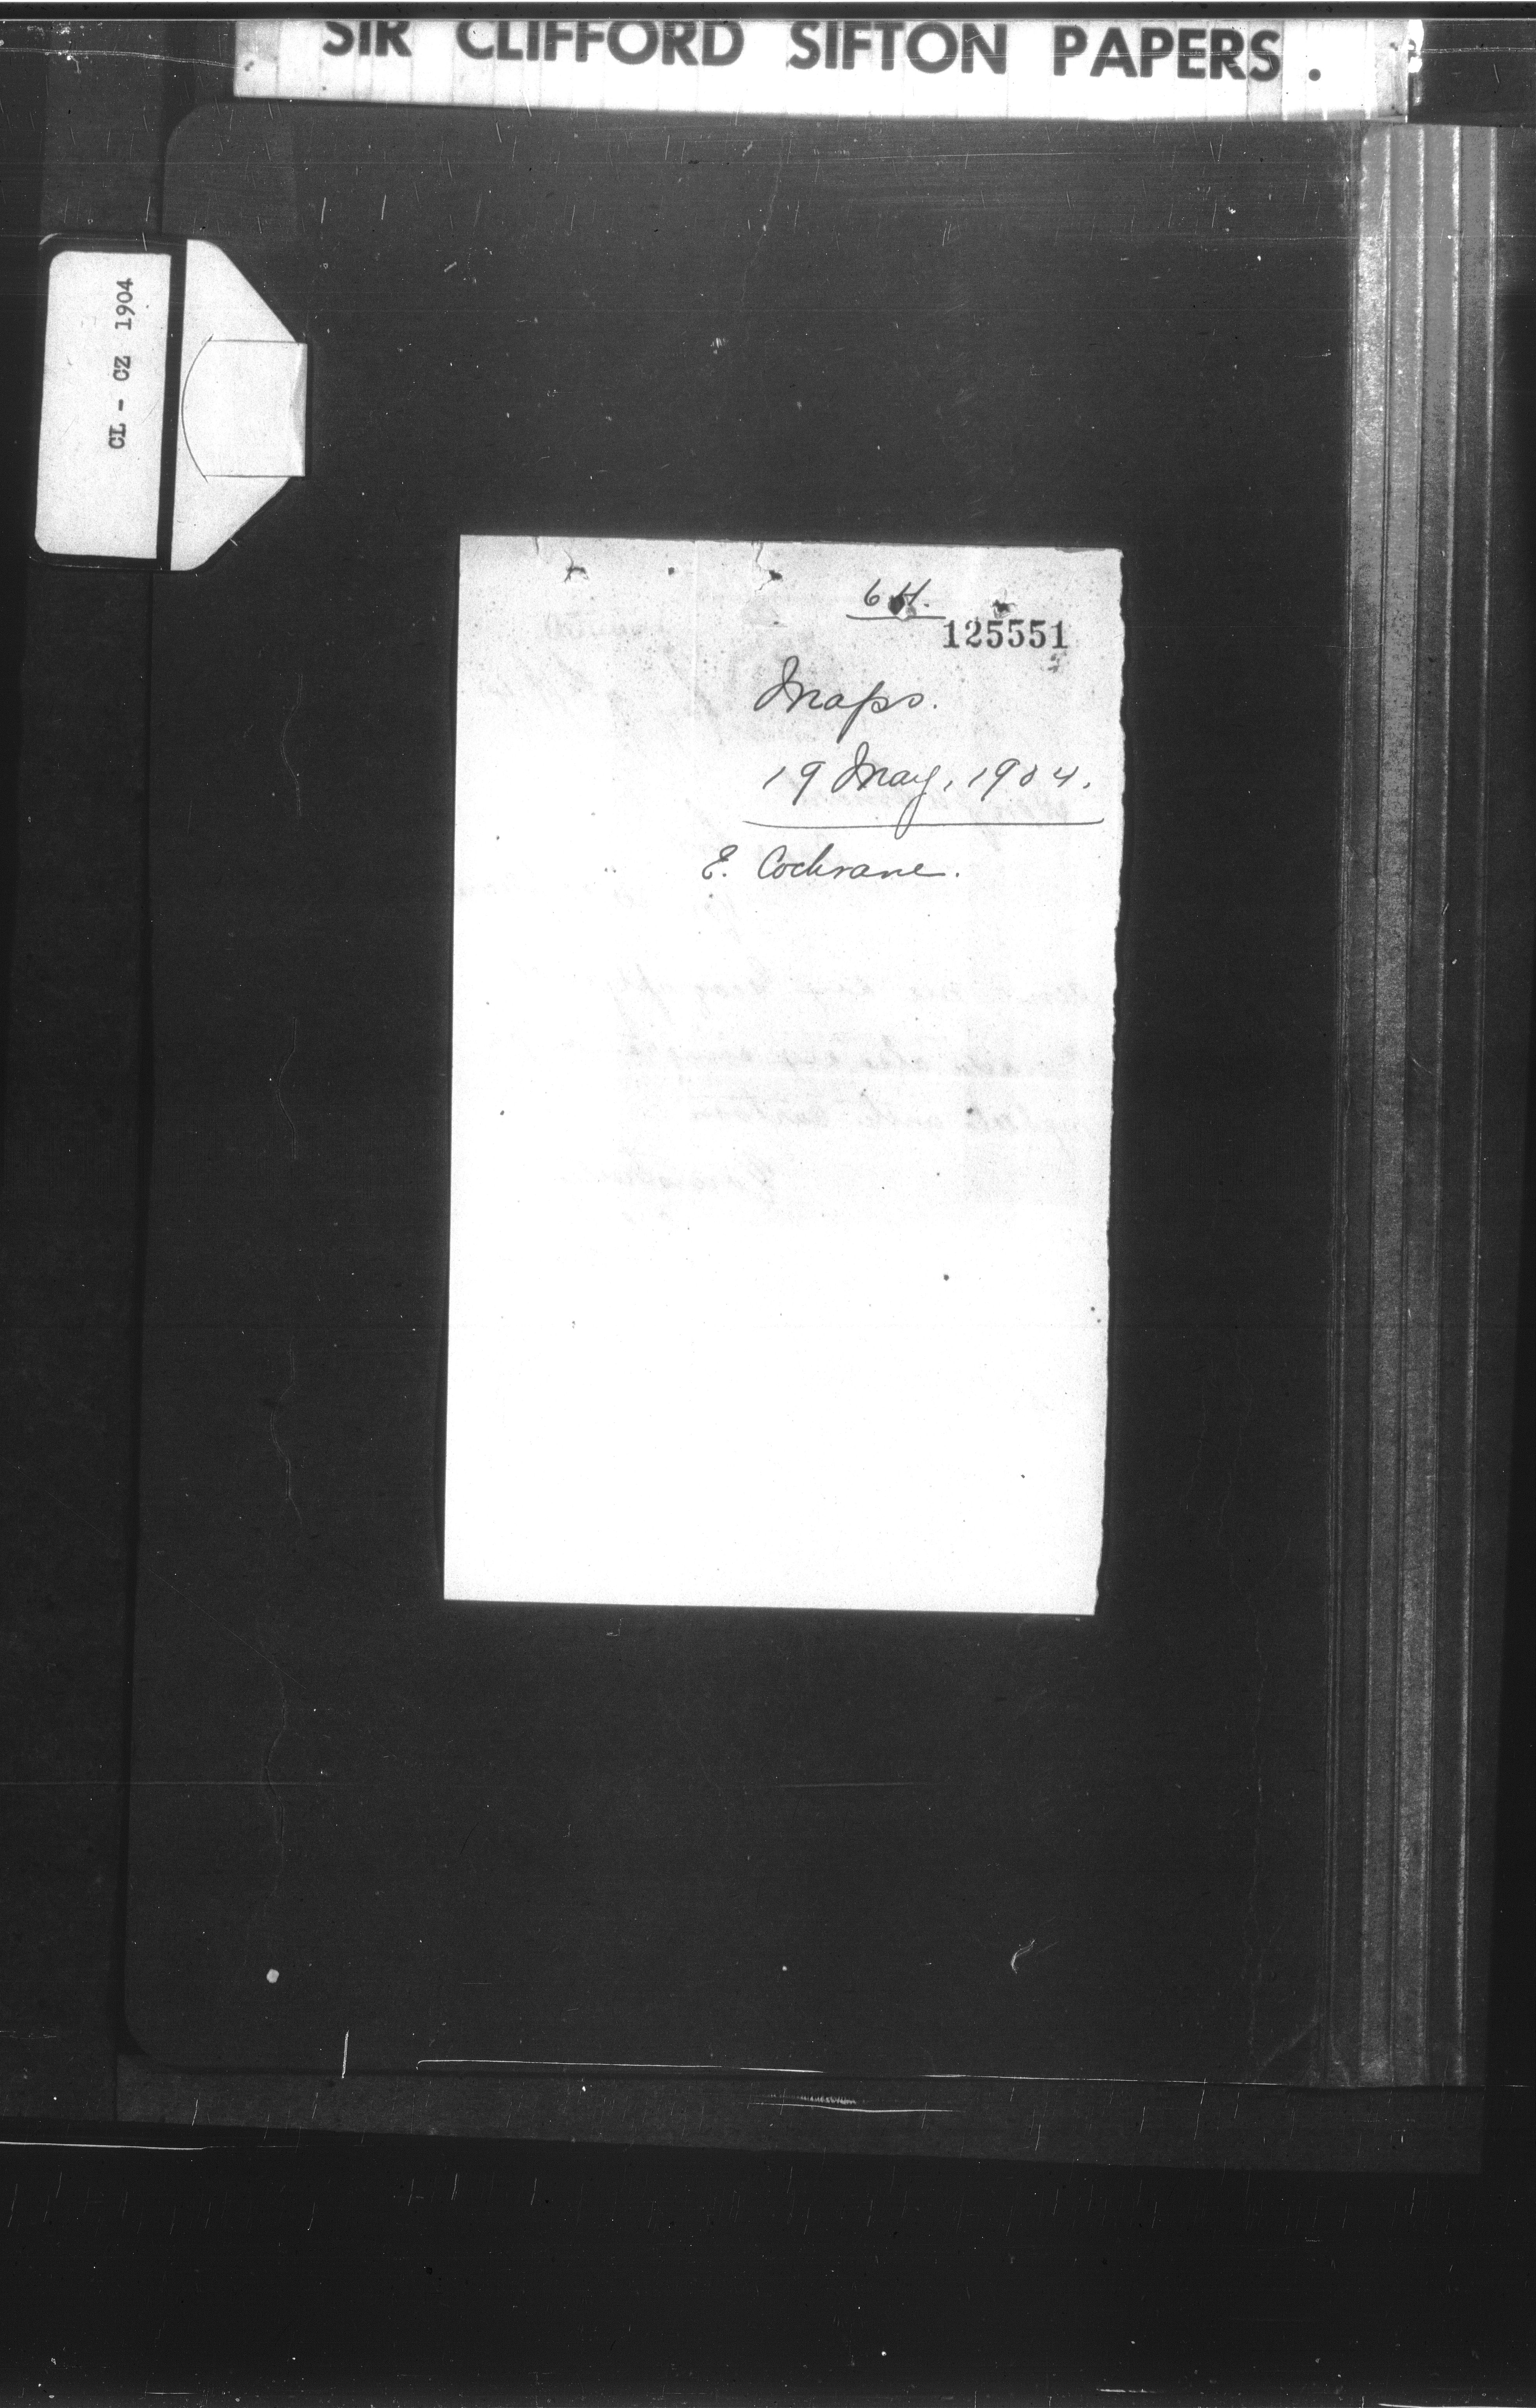 SIR CLIFFORD SIFTON PAPERS.
CL - CZ 1904
6 H.
125551
Maps.
19 May, 1904.
E. Cochrane.